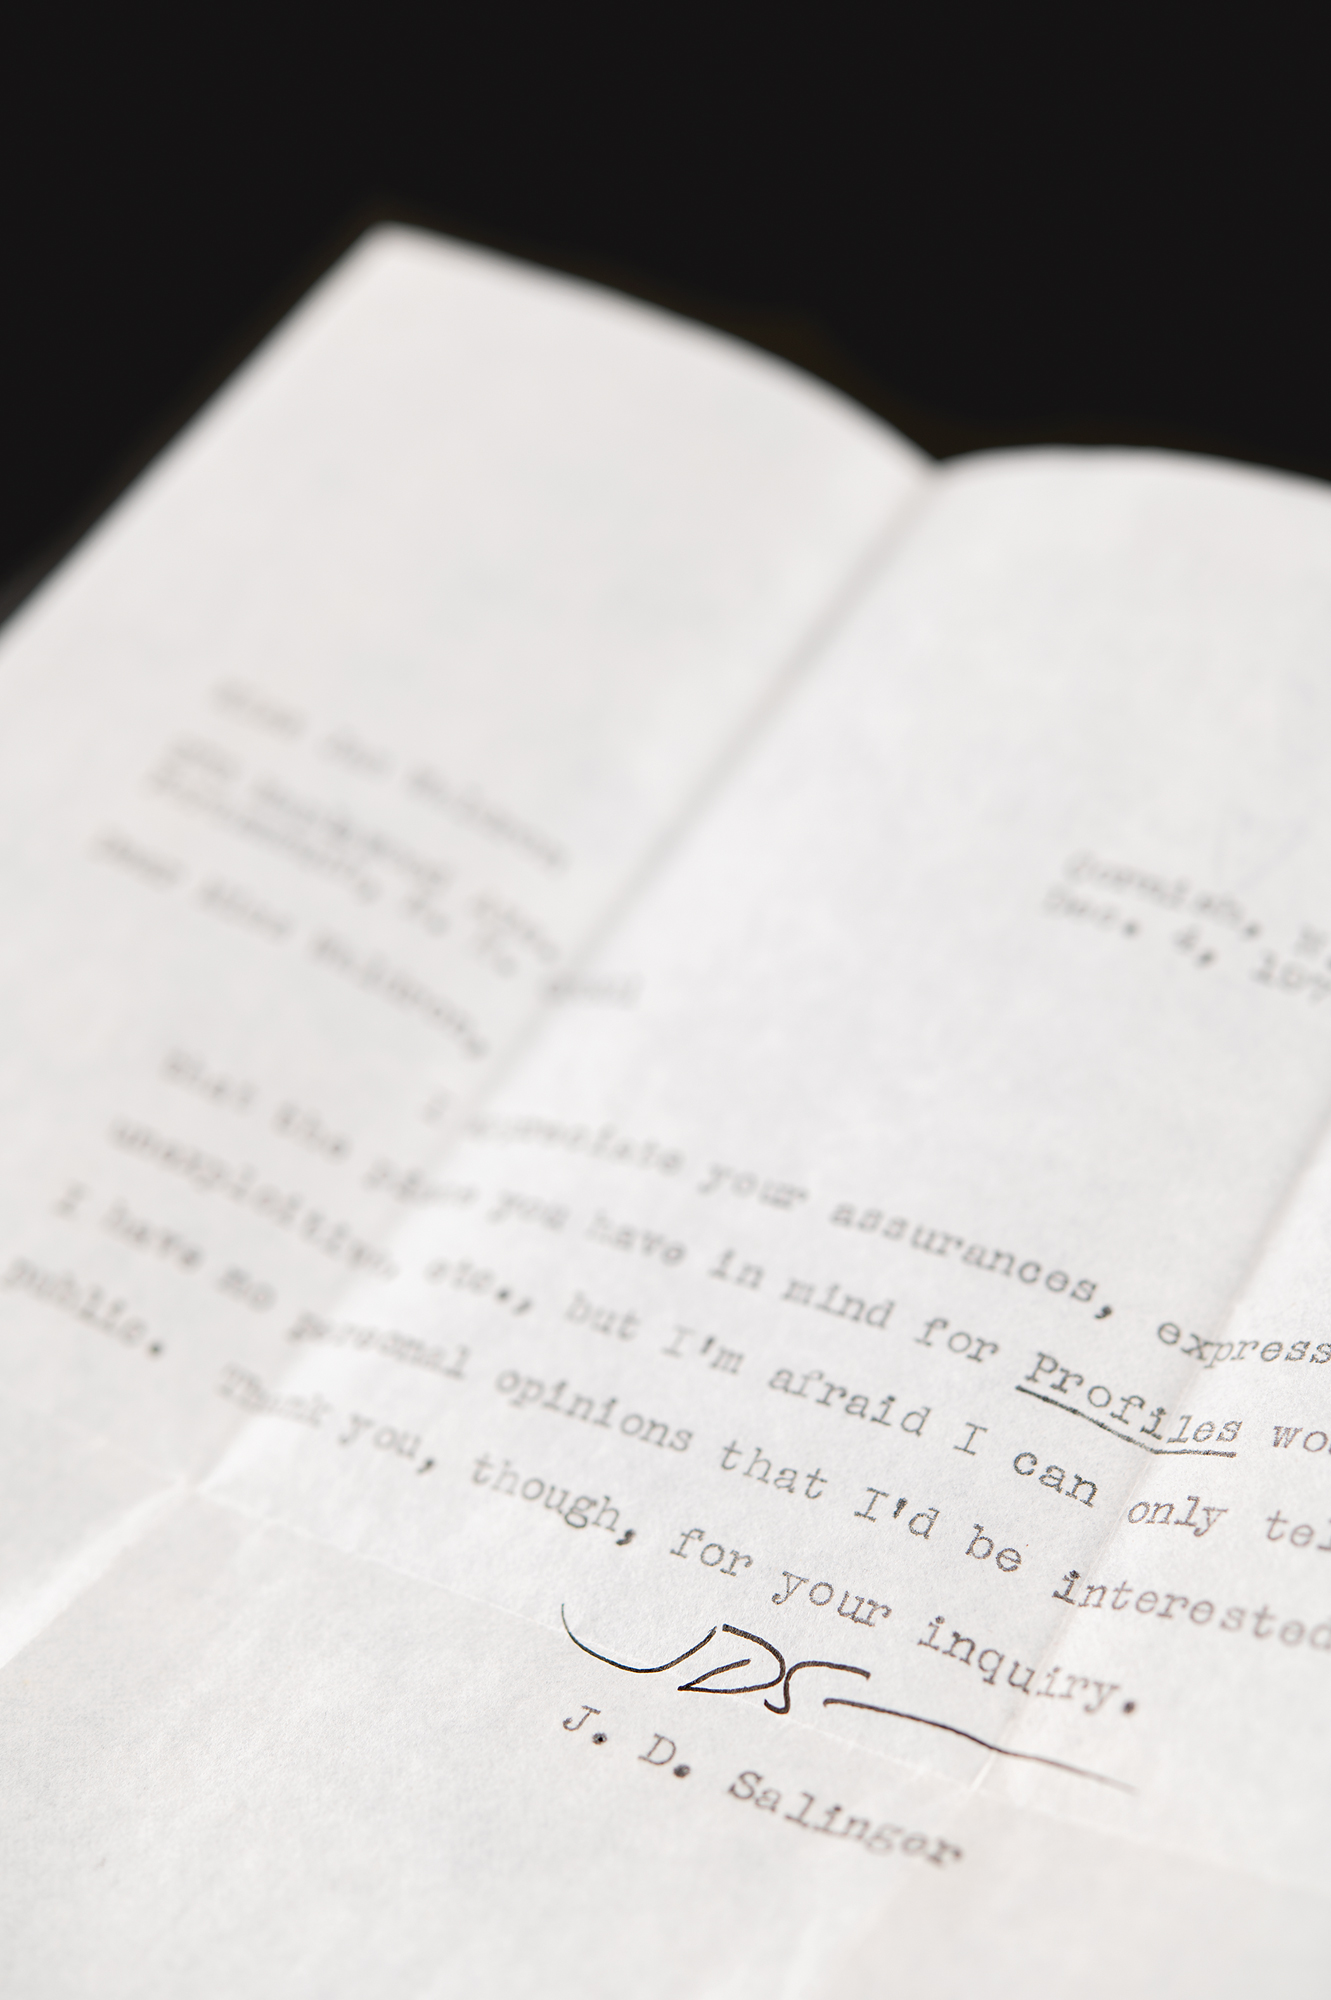 Cornish, N.
Dec. 4, 197
Dear Miss
I appreciate your assurances, express
that the piece you have in mind for Profiles wou
unexploitive, etc., but I'm afraid I can only tel
I have no personal opinions that I'd be interested
public. Thank you, though, for your inquiry.
JDS
J. D. Salinger